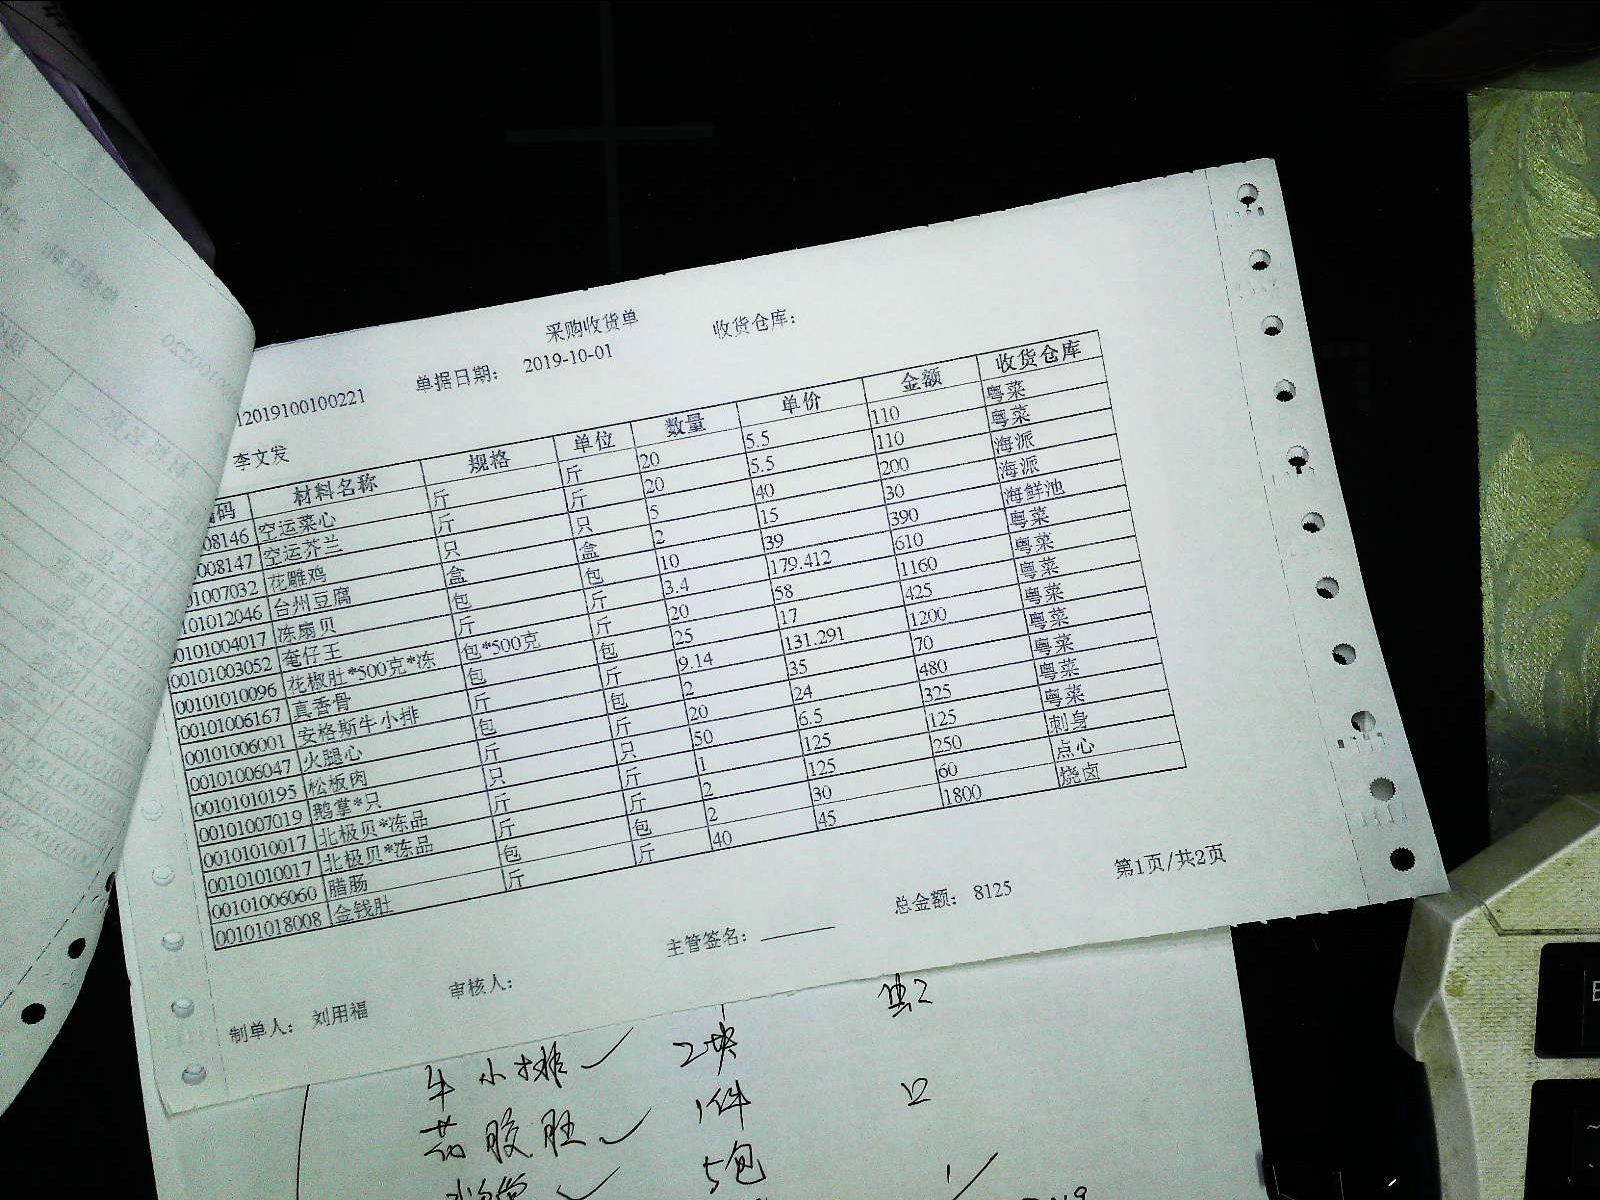 采购收货单
12019100100221 单据日期： 2019-10-01 收货仓库：
李文发
编码 材料名称 规格 单位 数量 单价 金额 收货仓库
08146 空运菜心 斤 斤 20 5.5 110 粤菜
008147 空运芥兰 斤 斤 20 5.5 110 粤菜
01007032 花雕鸡 只 只 5 40 200 海派
101012046 台州豆腐 盒 盒 2 15 30 海派
00101004017 冻扇贝 包 包 10 39 390 海鲜池
00101003052 奄仔王 斤 斤 3.4 179.412 610 粤菜
00101010096 花椒肚*500克*冻 包*500克 斤 20 58 1160 粤菜
00101006167 真香骨 包 包 25 17 425 粤菜
00101006001 安格斯牛小排 斤 斤 9.14 131.291 1200 粤菜
00101006047 火腿心 包 包 2 35 70 粤菜
00101010195 松板肉 斤 斤 20 24 480 粤菜
00101007019 鹅掌*只 只 只 50 6.5 325 粤菜
00101010017 北极贝*冻品 斤 斤 1 125 125 粤菜
00101010017 北极贝*冻品 斤 斤 2 125 250 刺身
00101006060 腊肠 包 包 2 30 60 点心
00101018008 金钱肚 斤 斤 40 45 1800 烧卤
制单人： 刘用福 审核人： 主管签名： 总金额： 8125 第1页/共2页
牛小排 2块
1件
5包